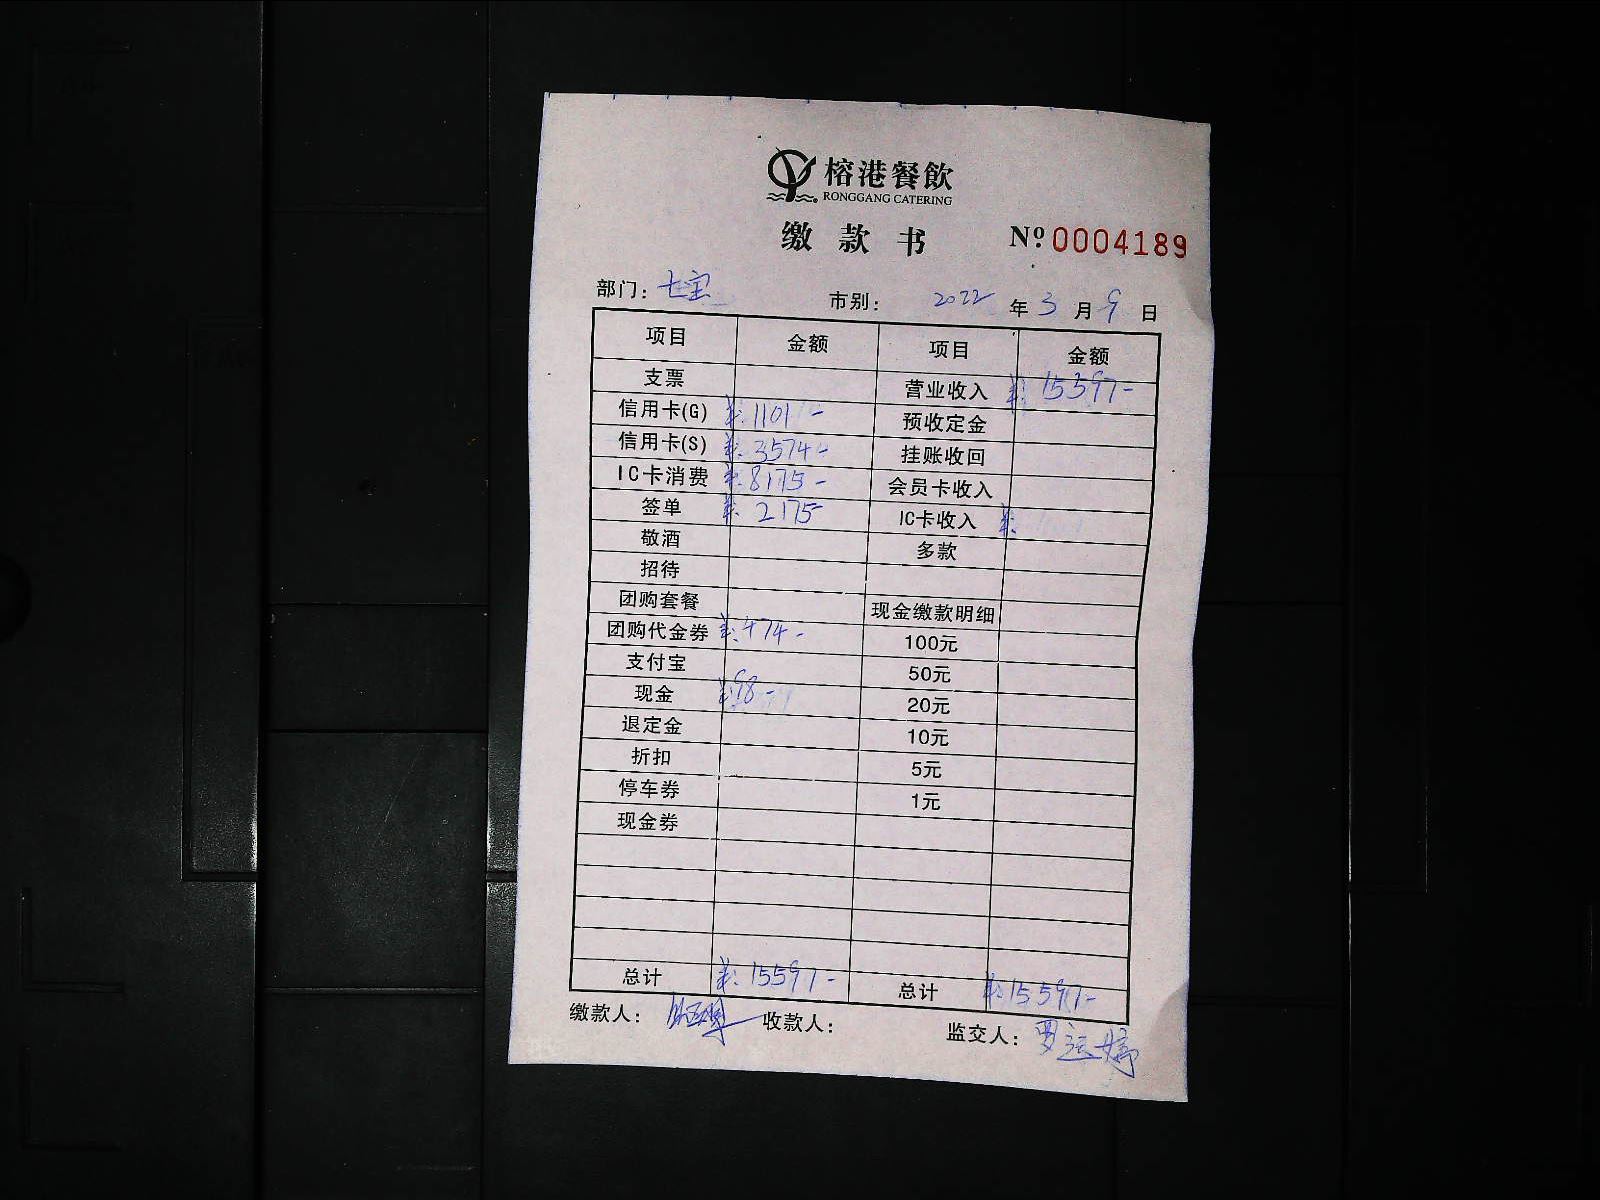 榕港餐飲
RONGGANG CATERING
缴款书 Nº 0004189
部门：七宝 市别： 2022 年 3 月 9 日
项目 金额 项目 金额
支票 营业收入 ¥:15597-
信用卡(G) ¥:1101- 预收定金
信用卡(S) ¥:3574- 挂账收回
IC卡消费 ¥:8175- 会员卡收入
签单 ¥:2175- IC卡收入 ¥:
敬酒 多款
招待
团购套餐 现金缴款明细
团购代金券 ¥:474- 100元
支付宝 50元
现金 ¥:98- 20元
退定金 10元
折扣 5元
停车券 1元
现金券
总计 ¥:15597- 总计 ¥:15597-
缴款人： 收款人： 监交人：罗运婷